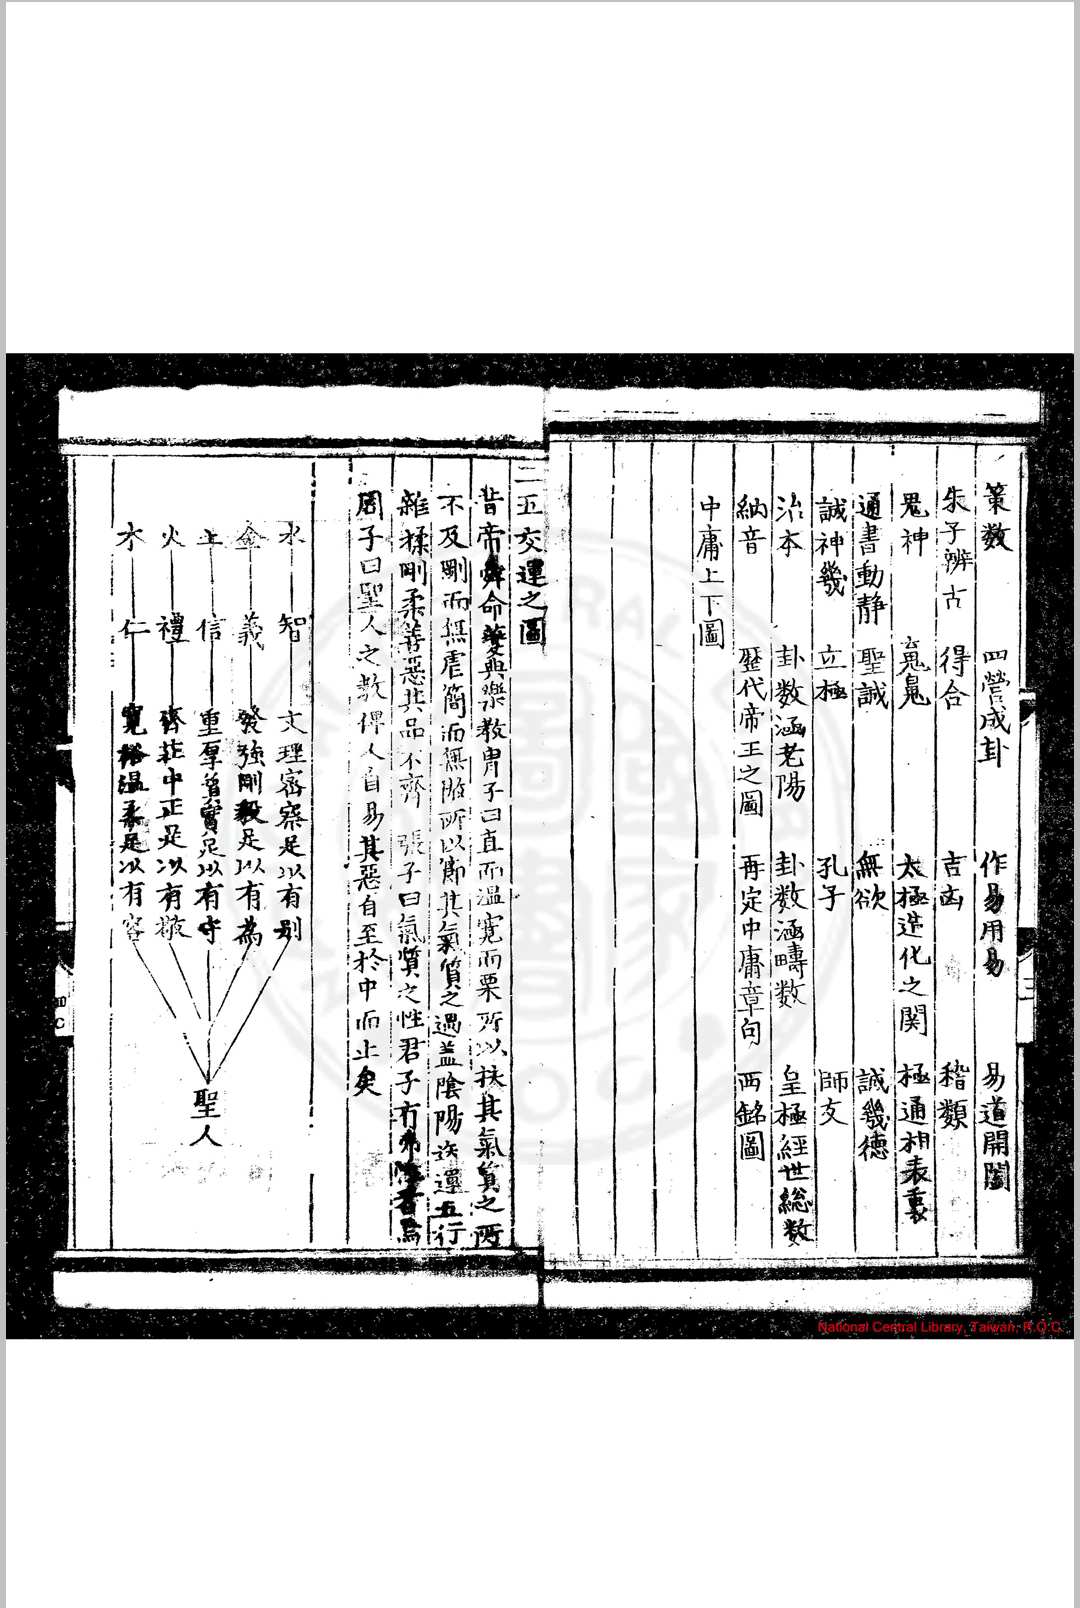 策数 四營成卦 作易用易 易道開闔
朱子辨古 得合 吉凶 稽類
鬼神 䰟鬼 太極造化之関 極通相表裏
通書動静 聖誠 無欲 誠幾德
誠神幾 立極 孔子 師友
治本 卦数涵老陽 卦数涵疇数 皇極經世総数
納音 歴代帝王之圖 再定中庸章句 西銘圖
中庸上下圖
三
二五交運之圖
昔帝舜命夔典樂教胄子曰直而温寛而栗所以扶其氣質之所
不及剛而無虐簡而無傲所以節其氣質之過盖陰陽迭運五行
雜揉剛柔善惡其品不齊 張子曰氣質之性君子有弗性者焉
周子曰聖人之教俾人自易其惡自至於中而止矣
水 智 文理密察足以有别
金 義 發強剛毅足以有為
土 信 重厚篤實足以有守
火 禮 齊莊中正足以有敬
木 仁 寛裕温柔足以有容
聖人
四
National Central Library, Taiwan, R.O.C